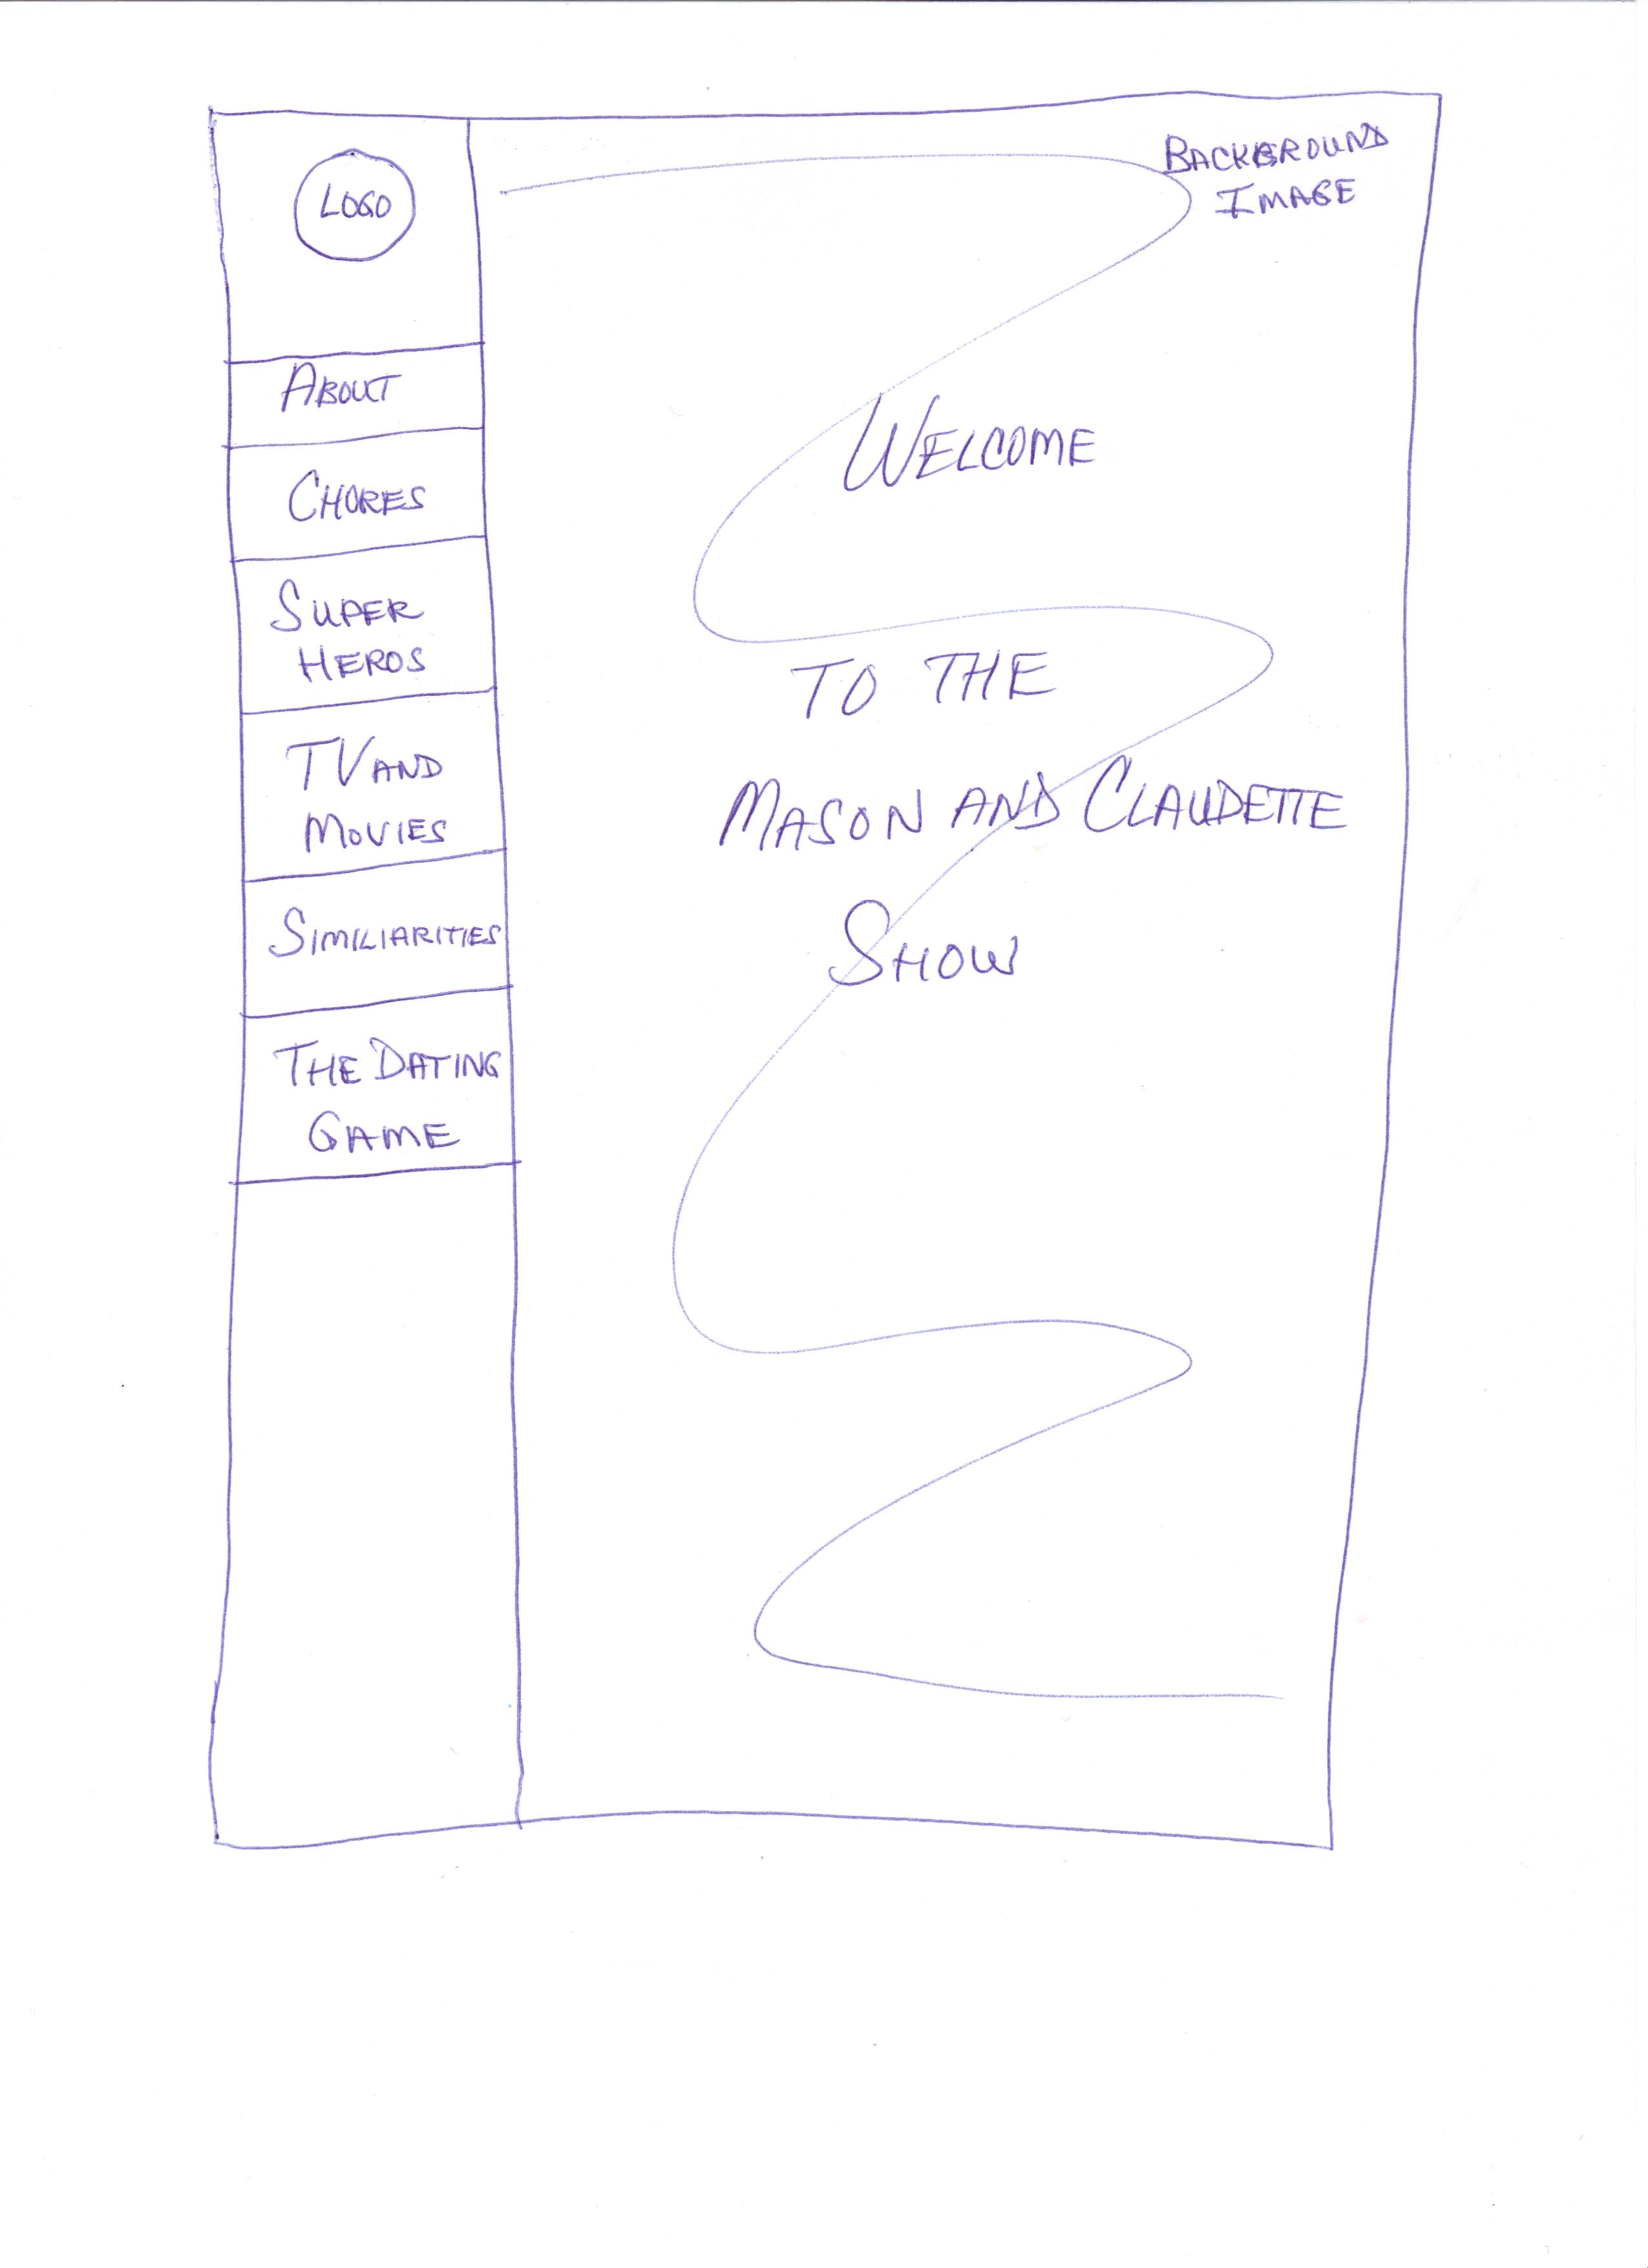 LOGO
ABOUT
CHORES
SUPER
HEROS
TV AND
MOVIES
SIMILIARITIES
THE DATING
GAME
BACKGROUND
IMAGE
WELCOME
TO THE
MASON AND CLAUDETTE
SHOW